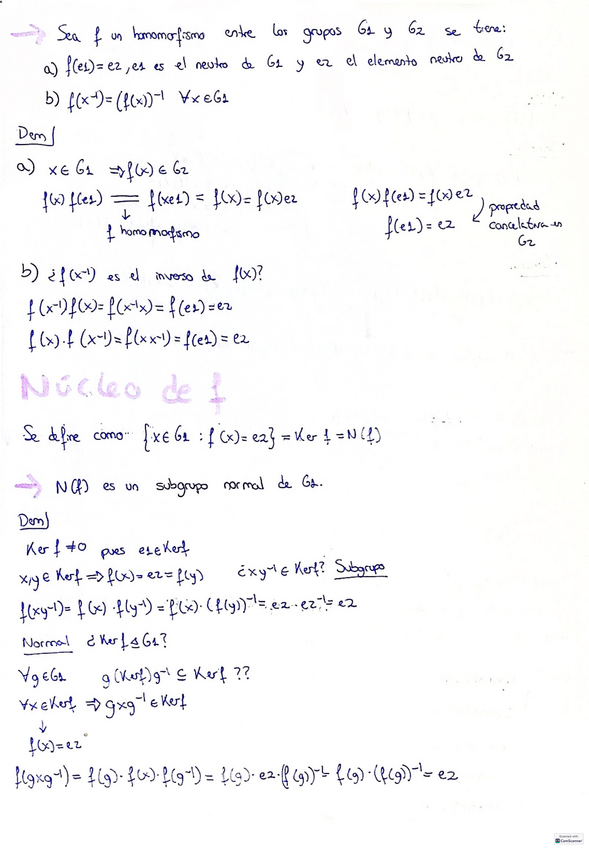 → Sea f un homomorfismo entre los grupos G1 y G2 se tiene:
a) f(e1)=e2, e1 es el neutro de G1 y e2 el elemento neutro de G2
b) f(x⁻¹)=(f(x))⁻¹ ∀x∈G1
Dem
a) x∈G1 ⇒ f(x)∈G2
f(x)f(e1) = f(xe1) = f(x) = f(x)e2
↓
f homomorfismo
f(x)f(e1)=f(x)e2
f(e1)=e2
propiedad
cancelativa en
G2
b) ¿f(x⁻¹) es el inverso de f(x)?
f(x⁻¹)f(x)=f(x⁻¹x)=f(e1)=e2
f(x).f(x⁻¹)=f(xx⁻¹)=f(e1)=e2
Núcleo de f
Se define como {x∈G1 : f(x)=e2} = Ker f = N(f)
→ N(f) es un subgrupo normal de G1.
Dem
Ker f ≠0 pues e1∈Kerf
x,y∈Kerf ⇒ f(x)=e2=f(y) ¿xy⁻¹∈Kerf? Subgrupo
f(xy⁻¹)= f(x)·f(y⁻¹)= f(x)·(f(y))⁻¹= e2·e2⁻¹= e2
Normal ¿Kerf⊴G1?
∀g∈G1 g(Kerf)g⁻¹ ⊆ Kerf ??
∀x∈Kerf ⇒ gxg⁻¹∈Kerf
↓
f(x)=e2
f(gxg⁻¹)= f(g)·f(x)·f(g⁻¹)= f(g)·e2·(f(g))⁻¹= f(g)·(f(g))⁻¹= e2
Scanned with
CamScanner